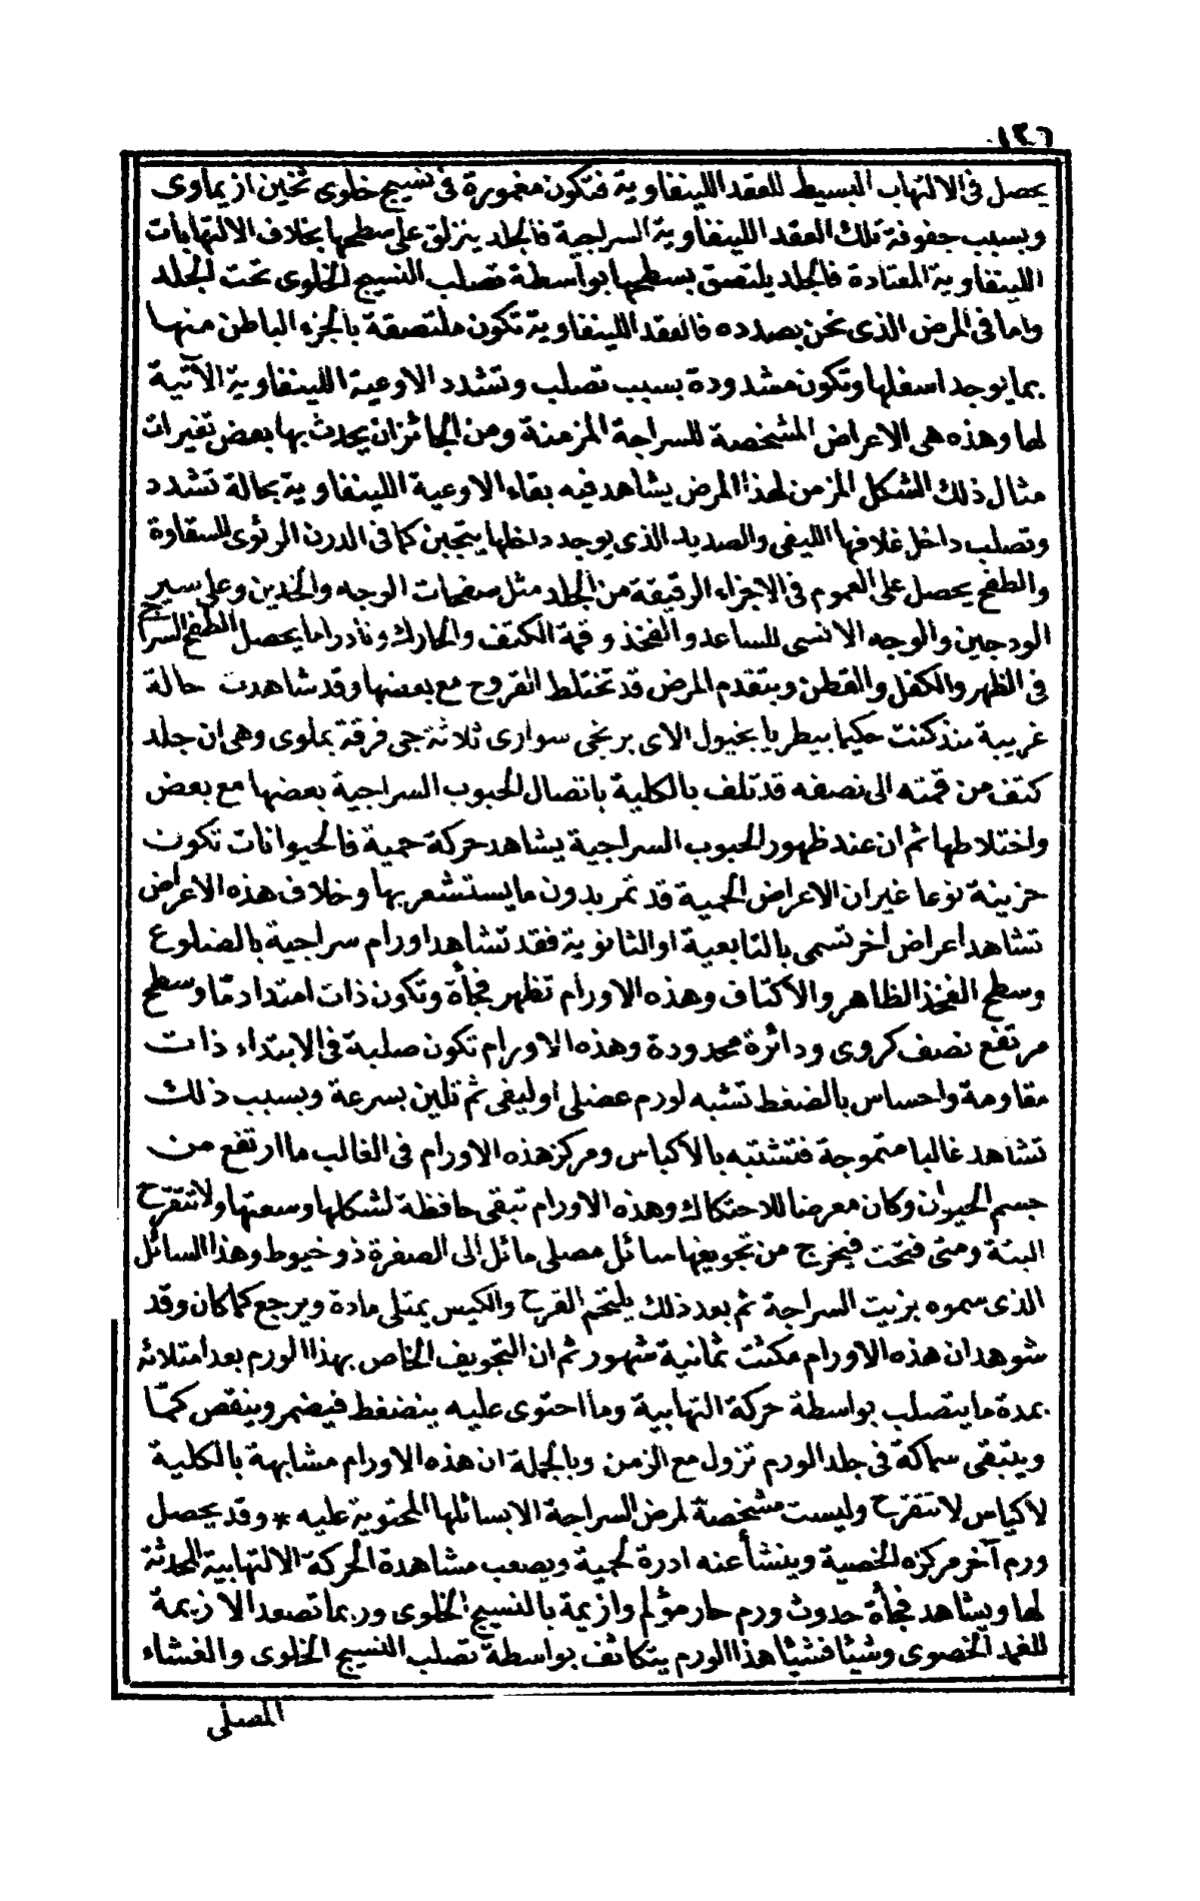 (٢٦)
يحصل فى الالتهاب البسيط للعقد اللينفاوية فتكون مغمورة فى نسيج خلوى ثخين ازيماوى
وبسبب جفوفة تلك العقد اللينفاوية السراجية فالجلد ينزلق على سطحها بخلاف الالتهابات
اللينفاوية المعتادة فالجلد يلتصق بسطحها بواسطة تصلب النسيج الخلوى تحت الجلد
واما فى المرض الذى نحن بصدده فالعقد اللينفاوية تكون ملتصقة بالجزء الباطن منها
بما يوجد اسفلها وتكون مشدودة بسبب تصلب وتشدد الاوعية اللينفاوية الآتية
لها وهذه هى الاعراض المشخصة للسراجة المزمنة ومن الجائز ان يحدث بها بعض تغيرات
مثال ذلك الشكل المزمن لهذا المرض يشاهد فيه بقاء الاوعية اللينفاوية بحالة تشدد
وتصلب داخل غلافها الليفى والصديد الذى يوجد داخلها يتجبن كما فى الدرن الرئوى للسقاوة
والطفح يحصل على العموم فى الاجزاء الرقيقة من الجلد مثل صفحات الوجه والخدين وعلى سير
الودجين والوجه الانسى للساعد والفخذ وقمة الكتف والحارك ونادرا ما يحصل الطفح السراجى
فى الظهر والكفل والقطن وبتقدم المرض قد تختلط القروح مع بعضها وقد شاهدت حالة
غريبة منذ كنت حكيما بيطريا بخيول الاى برنجى سوارى ثلاثة جى فرقة بملوى وهى ان جلد
كتف من قمته الى نصفه قد تلف بالكلية باتصال الحبوب السراجية بعضها مع بعض
واختلاطها ثم ان عند ظهور الحبوب السراجية يشاهد حركة حمية فالحيوانات تكون
حزينة نوعا غير ان الاعراض الحمية قد تمر بدون ما يستشعر بها وخلاف هذه الاعراض
تشاهد اعراض اخر تسمى بالتابعية او الثانوية فقد تشاهد اورام سراجية بالضلوع
وسطح الفخذ الظاهر والاكتاف وهذه الاورام تظهر فجأة وتكون ذات امتداد مّا وسطح
مرتفع نصف كروى ودائرة محدودة وهذه الاورام تكون صلبة فى الابتداء ذات
مقاومة واحساس بالضغط تشبه لورم عضلى اوليفى ثم تلين بسرعة وبسبب ذلك
تشاهد غالبا متموجة فتشتبه بالاكياس ومركز هذه الاورام فى الغالب ما ارتفع من
جسم الحيوان وكان معرضا للاحتكاك وهذه الاورام تبقى حافظة لشكلها وسعتها ولا تتقرح
البتة ومتى فتحت فيخرج من تجويفها سائل مصلى مائل الى الصفرة ذو خيوط وهذا السائل
الذى سموه بزيت السراجة ثم بعد ذلك يلتحم القرح والكيس يمتلى مادة ويرجع كما كان وقد
شوهد ان هذه الاورام مكثت ثمانية شهور ثم ان التجويف الخاص بهذا الورم بعد امتلائه
بمدة ما يتصلب بواسطة حركة التهابية وما احتوى عليه ينضغط فيضمر وينقص كمّا
ويتبقى سماكة فى جلد الورم تزول مع الزمن وبالجملة ان هذه الاورام مشابهة بالكلية
لاكياس لا تتقرح وليست مشخصة لمرض السراجة الا بسائلها المحتوية عليه * وقد يحصل
ورم آخر مركزه الخصية وينشأ عنه ادرة لحمية ويصعب مشاهدة الحركة الالتهابية المحدثة
لها ويشاهد فجأة حدوث ورم حار مؤلم وازيمة بالنسيج الخلوى وربما تصعد الازيمة
للغمد الخصوى وشيئا فشيئا هذا الورم يتكاثف بواسطة تصلب النسيج الخلوى والغشاء
المصلى